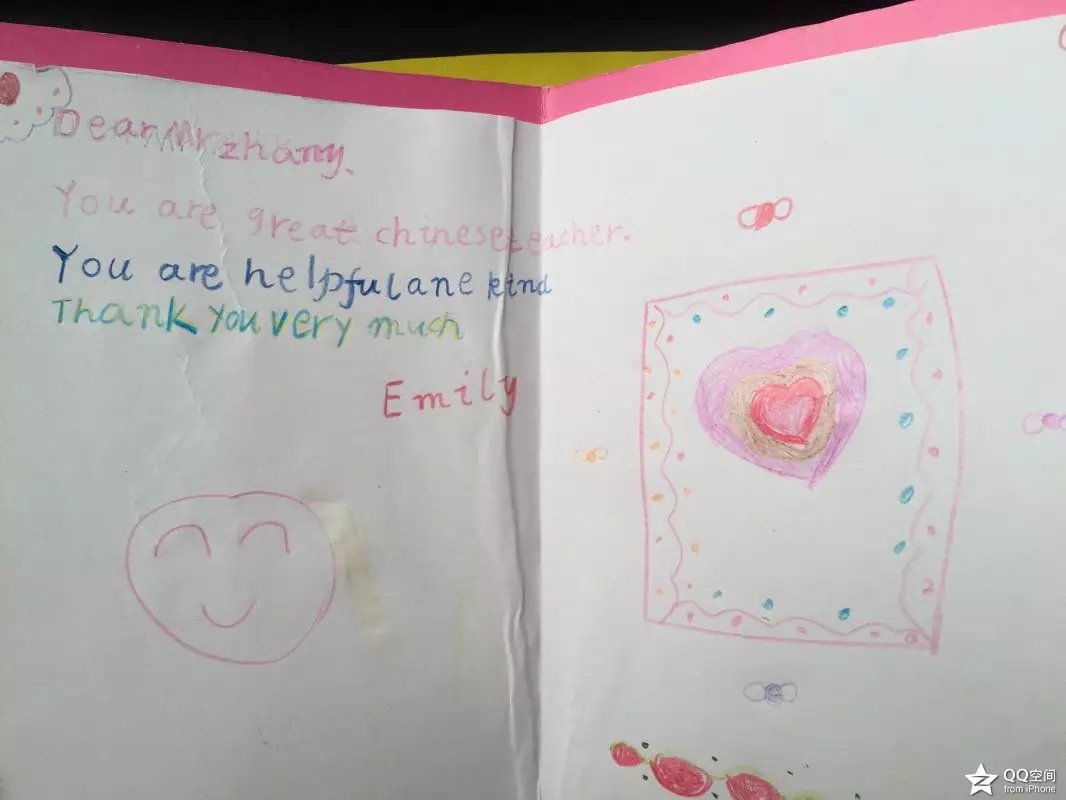 Dear Mr zhany.
You are great chinese teacher.
You are helpful ane kind
Thank You very much
Emily
QQ空间
from iPhone